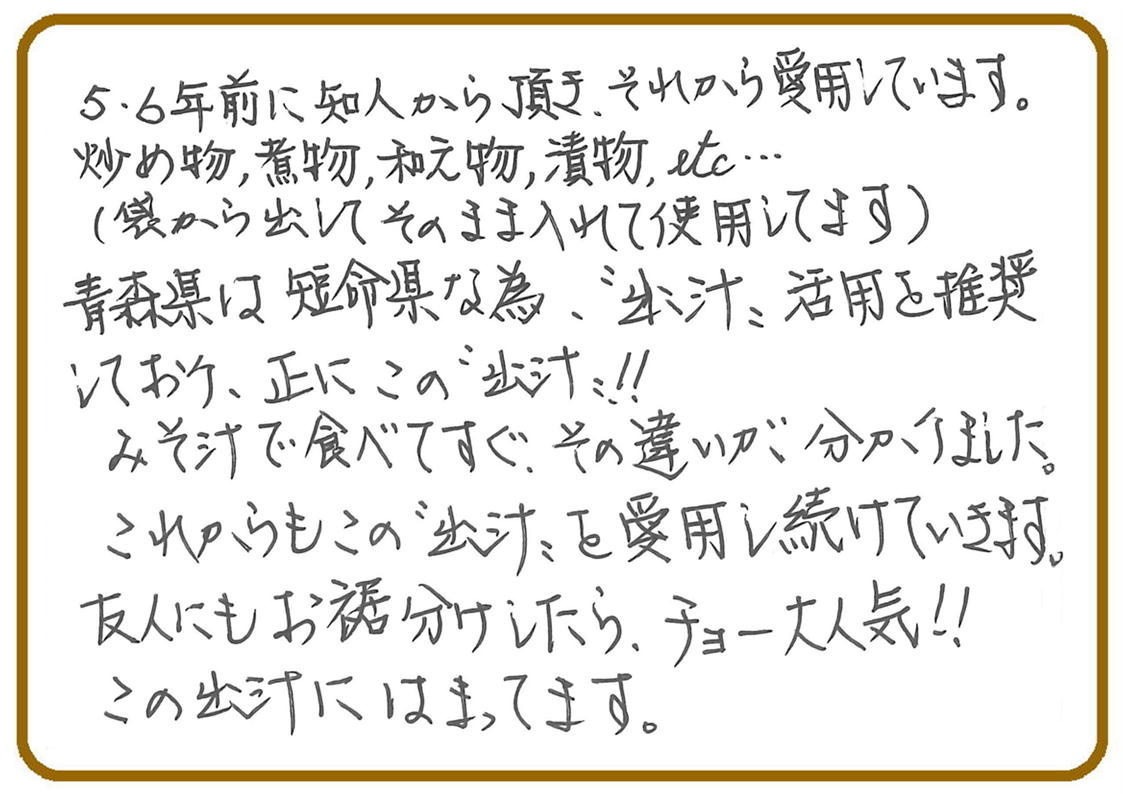 5・6年前に知人から頂き、それから愛用しています。
炒め物,煮物,和え物,漬物,etc…
(袋から出してそのまま入れて使用してます)
青森県は短命県な為、〝出汁〟活用を推奨
しており、正にこの〝出汁〟!!
みそ汁で食べてすぐ、その違いが分かりました。
これからもこの〝出汁〟を愛用し続けていきます。
友人にもお裾分けしたら、チョー大人気!!
この出汁にはまってます。